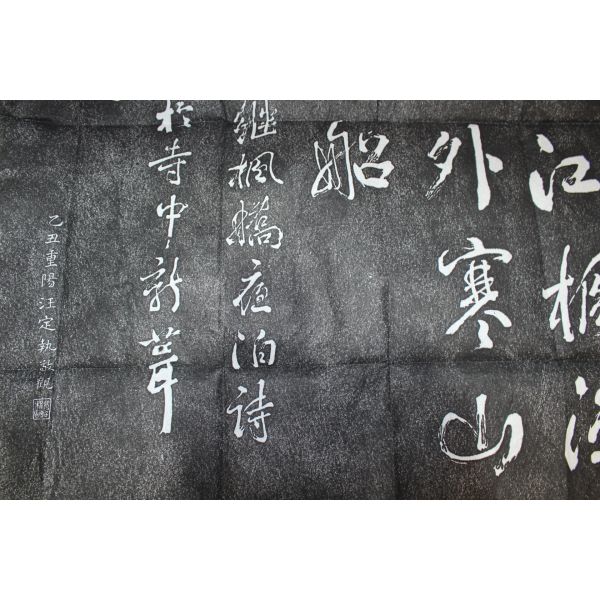 江楓漁
外寒山
船
繼楓橋夜泊詩
於寺中新葺
乙丑重陽汪定執敬観